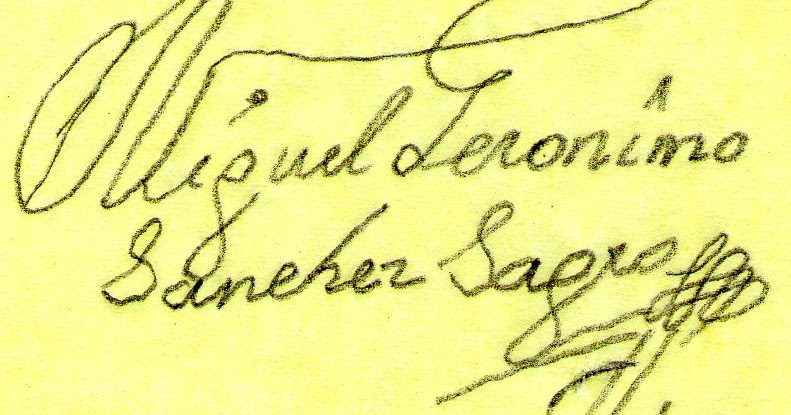 Miguel Jeronimo
Sanchez Sagro